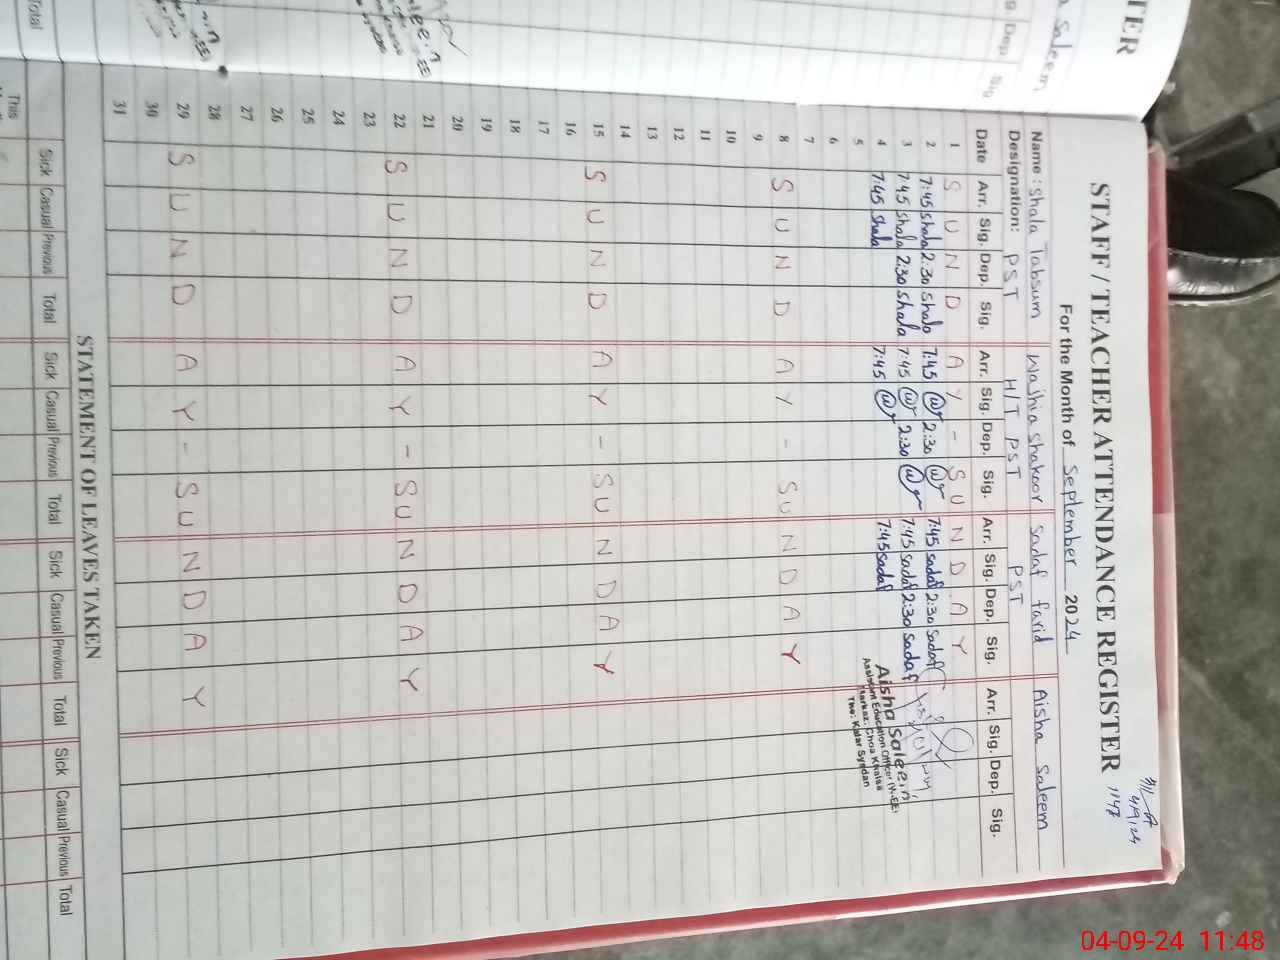 STAFF / TEACHER ATTENDANCE REGISTER
For the Month of September 2024
Name: Shala Tabsum Wajhia Shakoor Sadaf farid Aisha Saleem
Designation: PST H/T PST PST
Date Arr. Sig. Dep. Sig. Arr. Sig. Dep. Sig. Arr. Sig. Dep. Sig. Arr. Sig. Dep. Sig.
1 SUNDAY - SUNDAY
2 7:45 Shala 2:30 Shala 7:45 2:30 7:45 sadaf 2:30 sadaf
3 7:45 Shala 2:30 Shala 7:45 2:30 7:45 sadaf 2:30 sadaf
4 7:45 Shala 7:45 7:45 sadaf
Aisha Saleem
Assistant Education Officer (W-EE)
Markaz: Choa Khalsa
The: Kalar Syedan
5
6
7
8 SUNDAY - SUNDAY
9
10
11
12
13
14
15 SUNDAY - SUNDAY
16
17
18
19
20
21
22 SUNDAY - SUNDAY
23
24
25
26
27
28
29 SUNDAY - SUNDAY
30
31
STATEMENT OF LEAVES TAKEN
Sick Casual Previous Total Sick Casual Previous Total Sick Casual Previous Total Sick Casual Previous Total
This
TER
Saleem
Dep. Sig
Total
1147
4/9/24
04-09-24 11:48